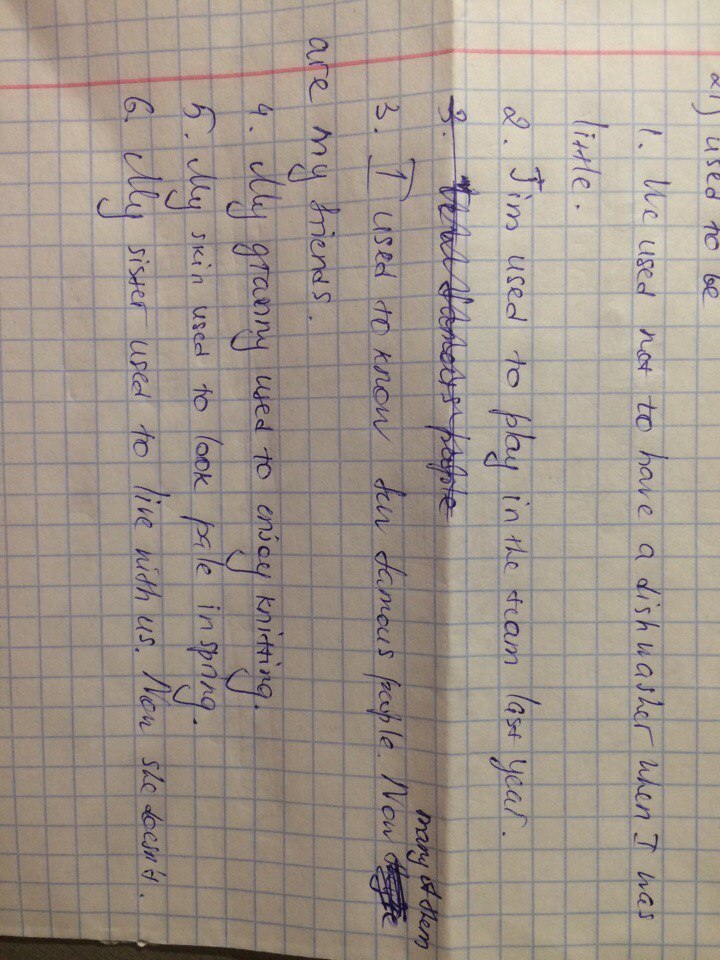 21) used to be
1. We used not to have a dishwasher when I was
little.
2. Jim used to play in the team last year.
3. few famous people
3. I used to know few famous people. Now many of them
are my friends.
4. My granny used to enjoy knitting.
5. My skin used to look pale in spring.
6. My sister used to live with us. Now she doesn't.